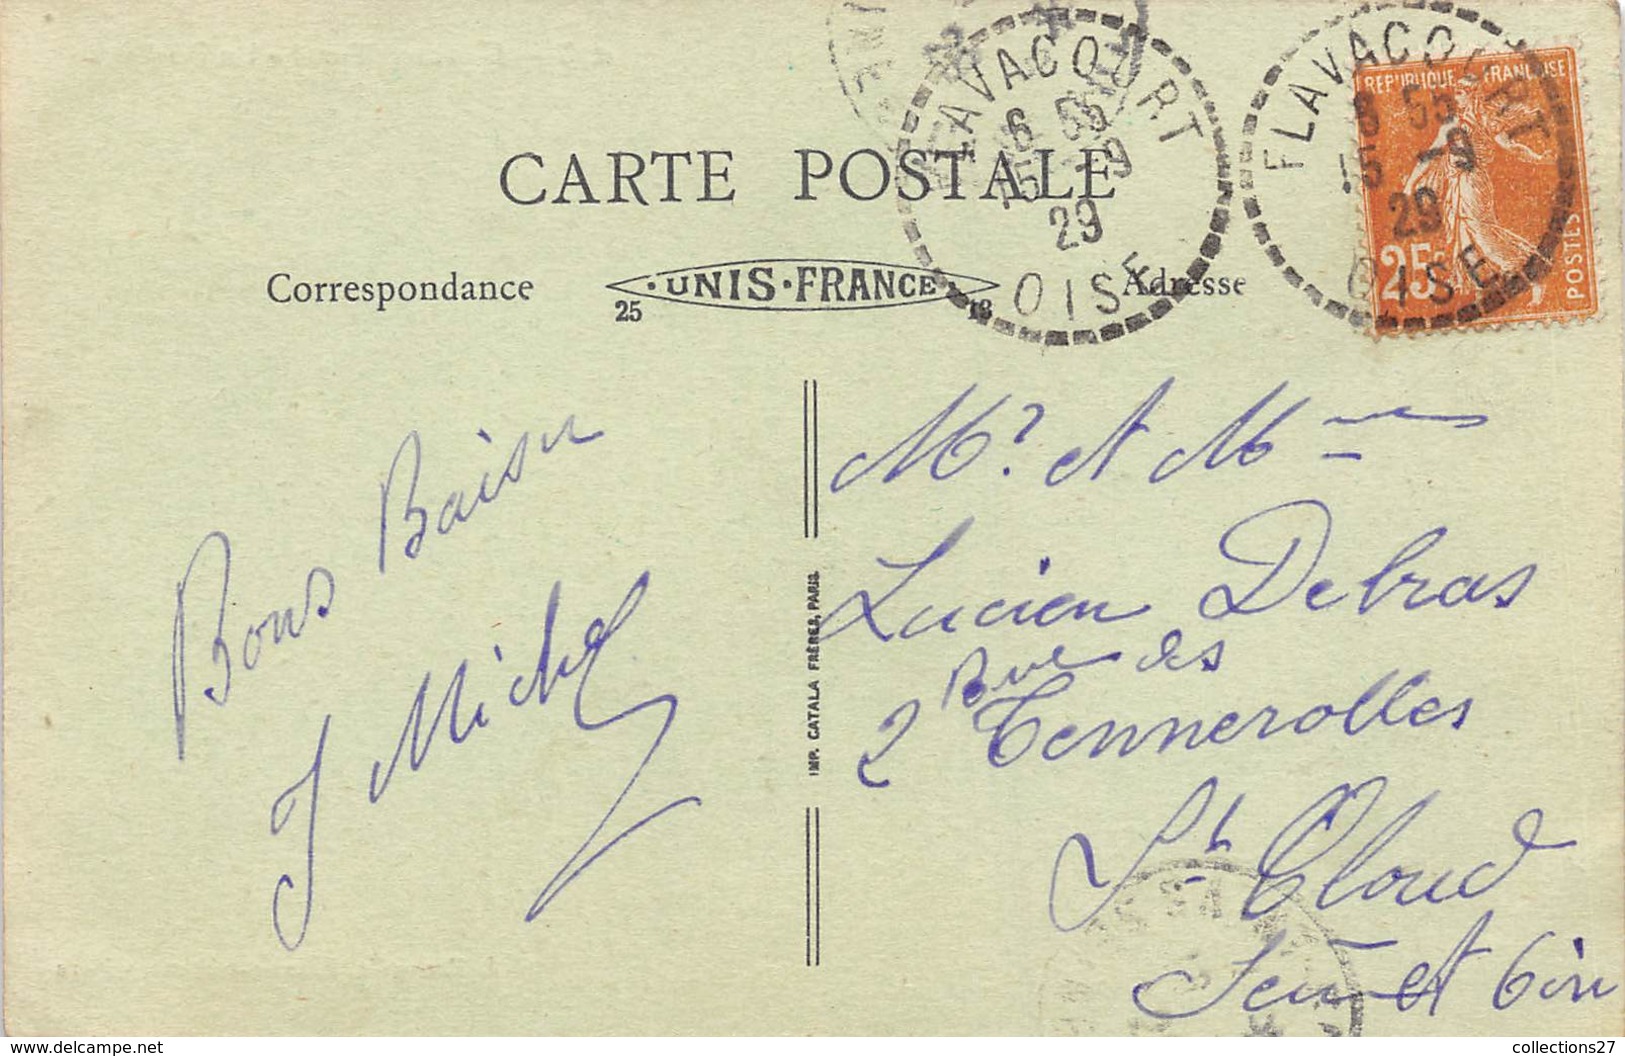 CARTE POSTALE
Correspondance
UNIS-FRANCE
25
18
Adresse
FLAVACOURT
6 55
15 -9
29
OISE
FLAVACOURT
6 55
15 -9
29
OISE
REPUBLIQUE FRANÇAISE
25
POSTES
Bons Baisers
J Michel
IMP. CATALA FRÈRES, PARIS
Mr et Mme
Lucien Debras
2 Rue des
Tennerolles
St Cloud
Sein et Oise
collections27